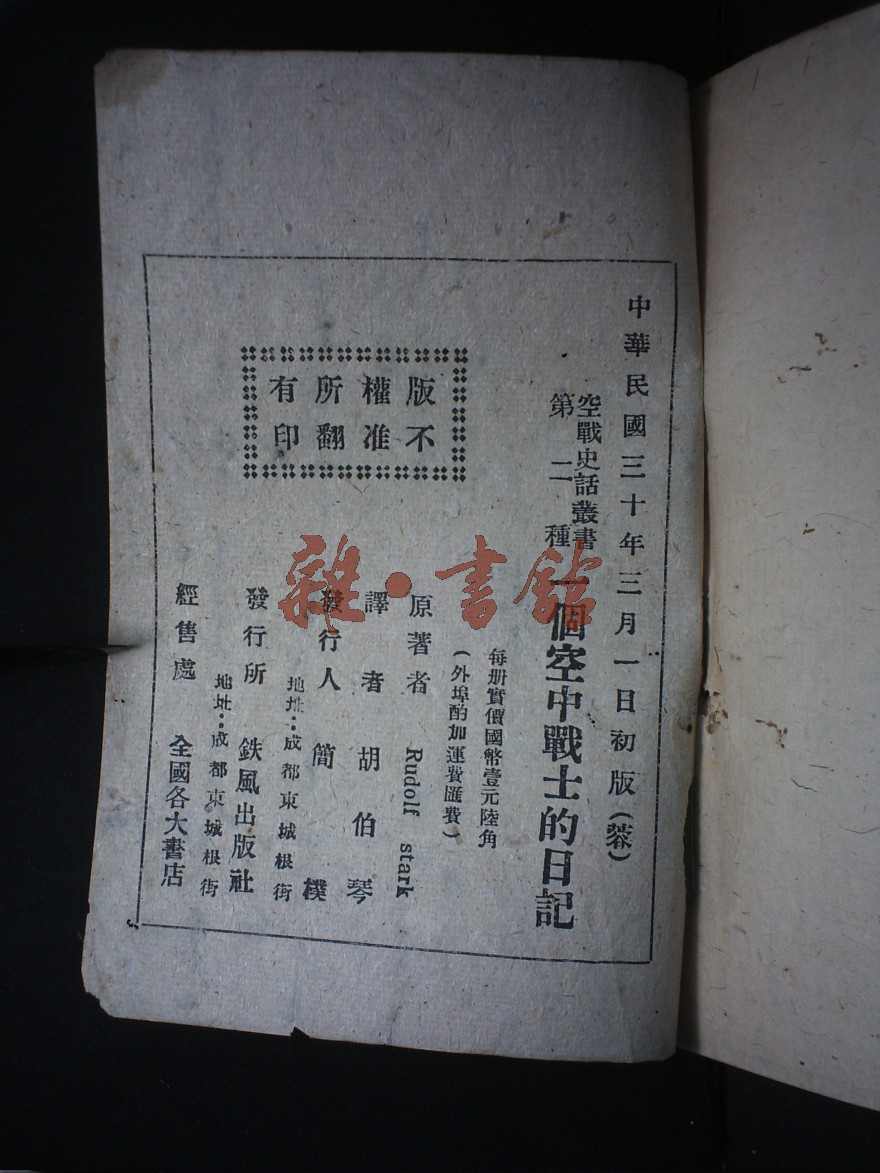 中華民國三十年三月一日初版（蓉）
空戰史話叢書
第二種
一個空中戰士的日記
每册實價國幣壹元陸角
（外埠酌加運費匯費）
原著者 Rudolf stark
譯者 胡伯琴
發行人 簡樸
地址：成都東城根街
發行所 鉄風出版社
地址：成都東城根街
經售處 全國各大書店
版權所有
不准翻印
雜·書館